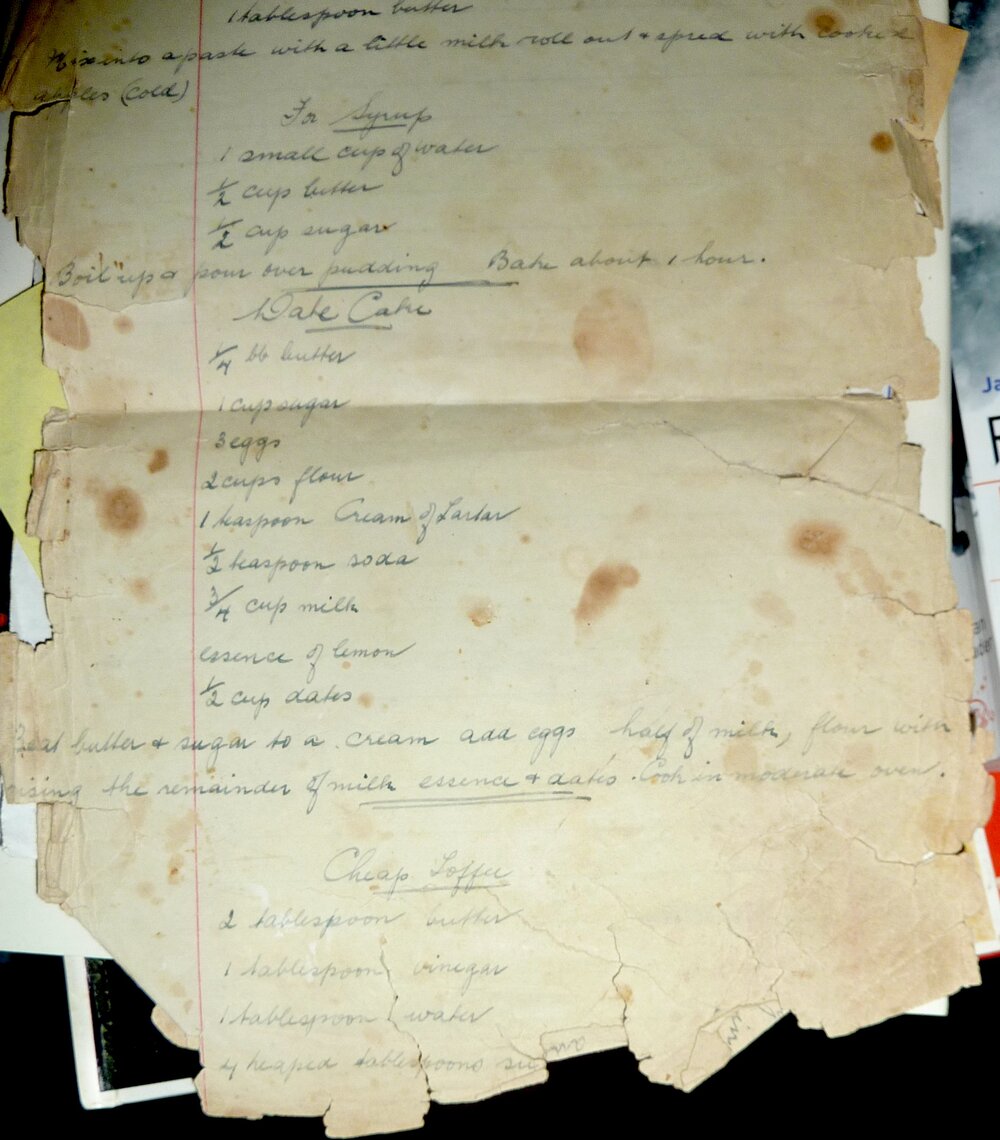 1 tablespoon butter
Mix into a paste with a little milk roll out & spred with cooked
apples (cold)
For Syrup
1 small cup of water
1/2 cup butter
1/2 cup sugar
Boil up & pour over pudding Bake about 1 hour.
Date Cake
1/4 lb butter
1 cup sugar
3 eggs
2 cups flour
1 teaspoon Cream of Tartar
1/2 teaspoon soda
3/4 cup milk
essence of lemon
1/2 cup dates
Beat butter & sugar to a cream add eggs half of milk, flour with
rising the remainder of milk essence & dates. Cook in moderate oven.
Cheap Toffee
2 tablespoon butter
1 tablespoon vinegar
1 tablespoon water
4 heaped tablespoons su